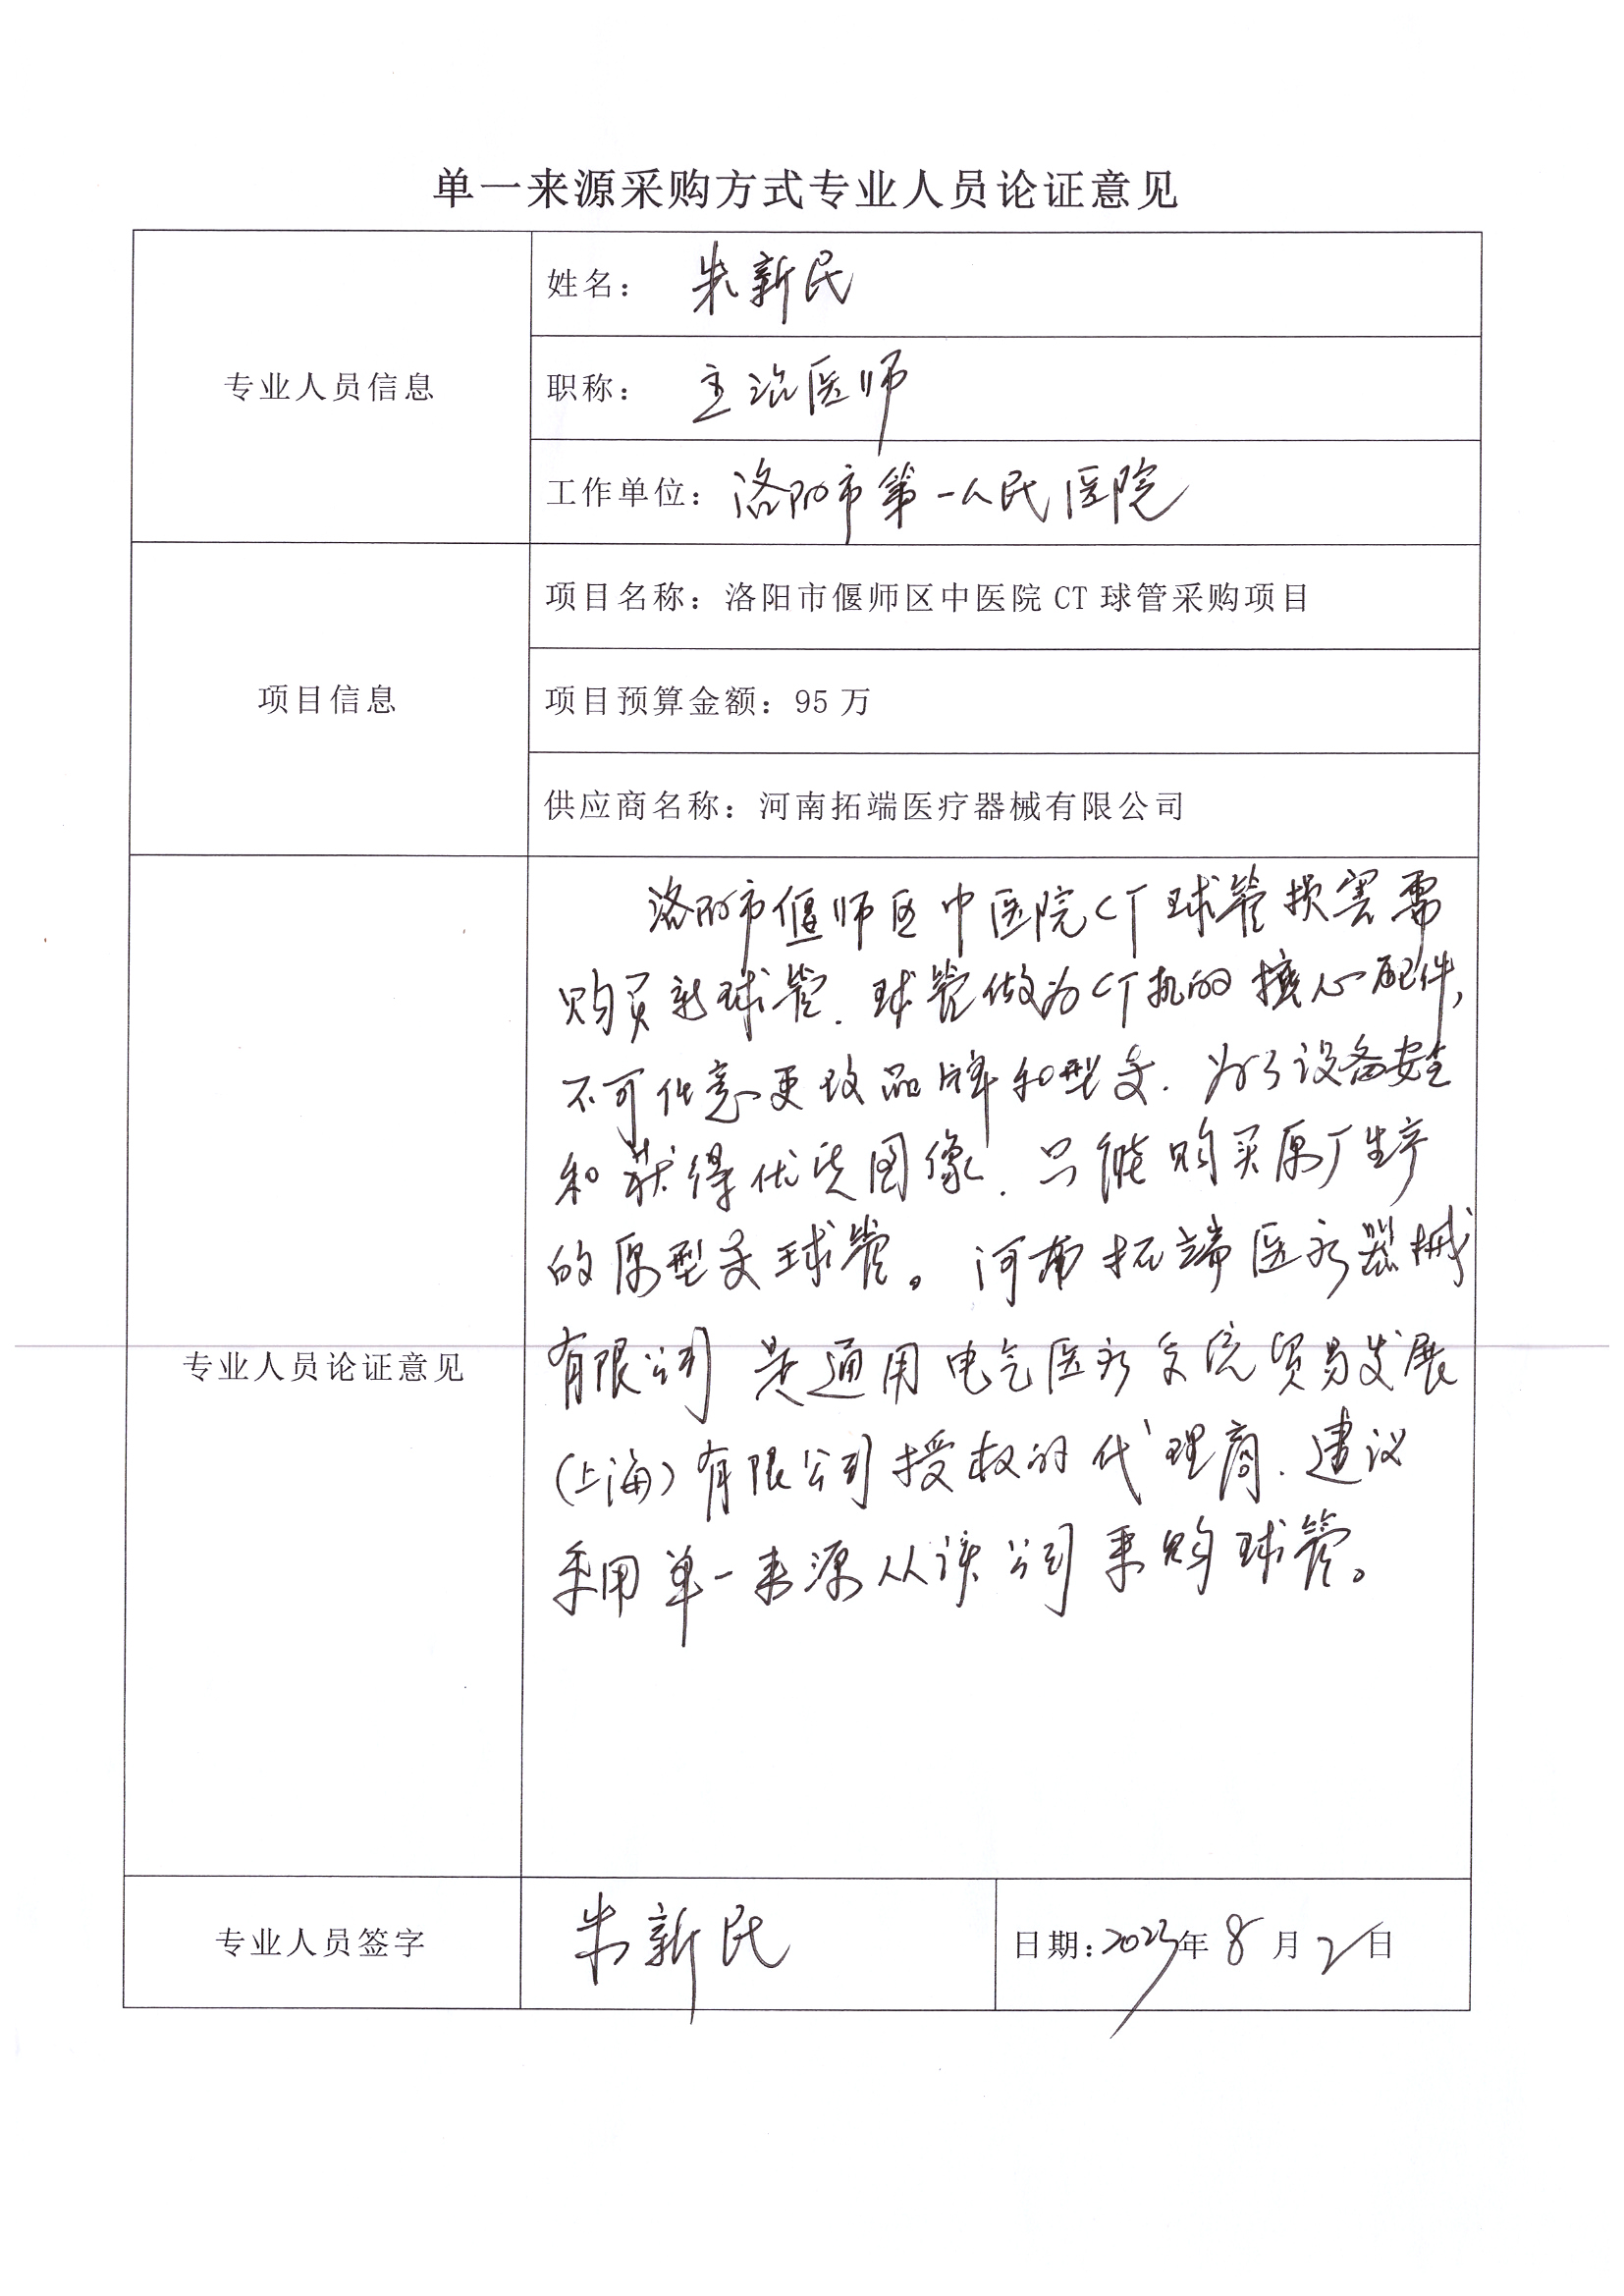 单一来源采购方式专业人员论证意见
专业人员信息
姓名： 朱新民
职称： 主治医师
工作单位：洛阳市第一人民医院
项目信息
项目名称：洛阳市偃师区中医院 CT 球管采购项目
项目预算金额：95 万
供应商名称：河南拓端医疗器械有限公司
专业人员论证意见
洛阳市偃师区中医院CT球管损害需
购买新球管.球管做为CT机的核心配件,
不可任意更改品牌和型号.为了设备安全
和获得优质图像.只能购买原厂生产
的原型号球管。河南拓端医疗器械
有限公司是通用电气医疗系统贸易发展
(上海)有限公司授权的代理商.建议
采用单一来源从该公司采购球管。
专业人员签字
朱新民
日期:2023年8月2日